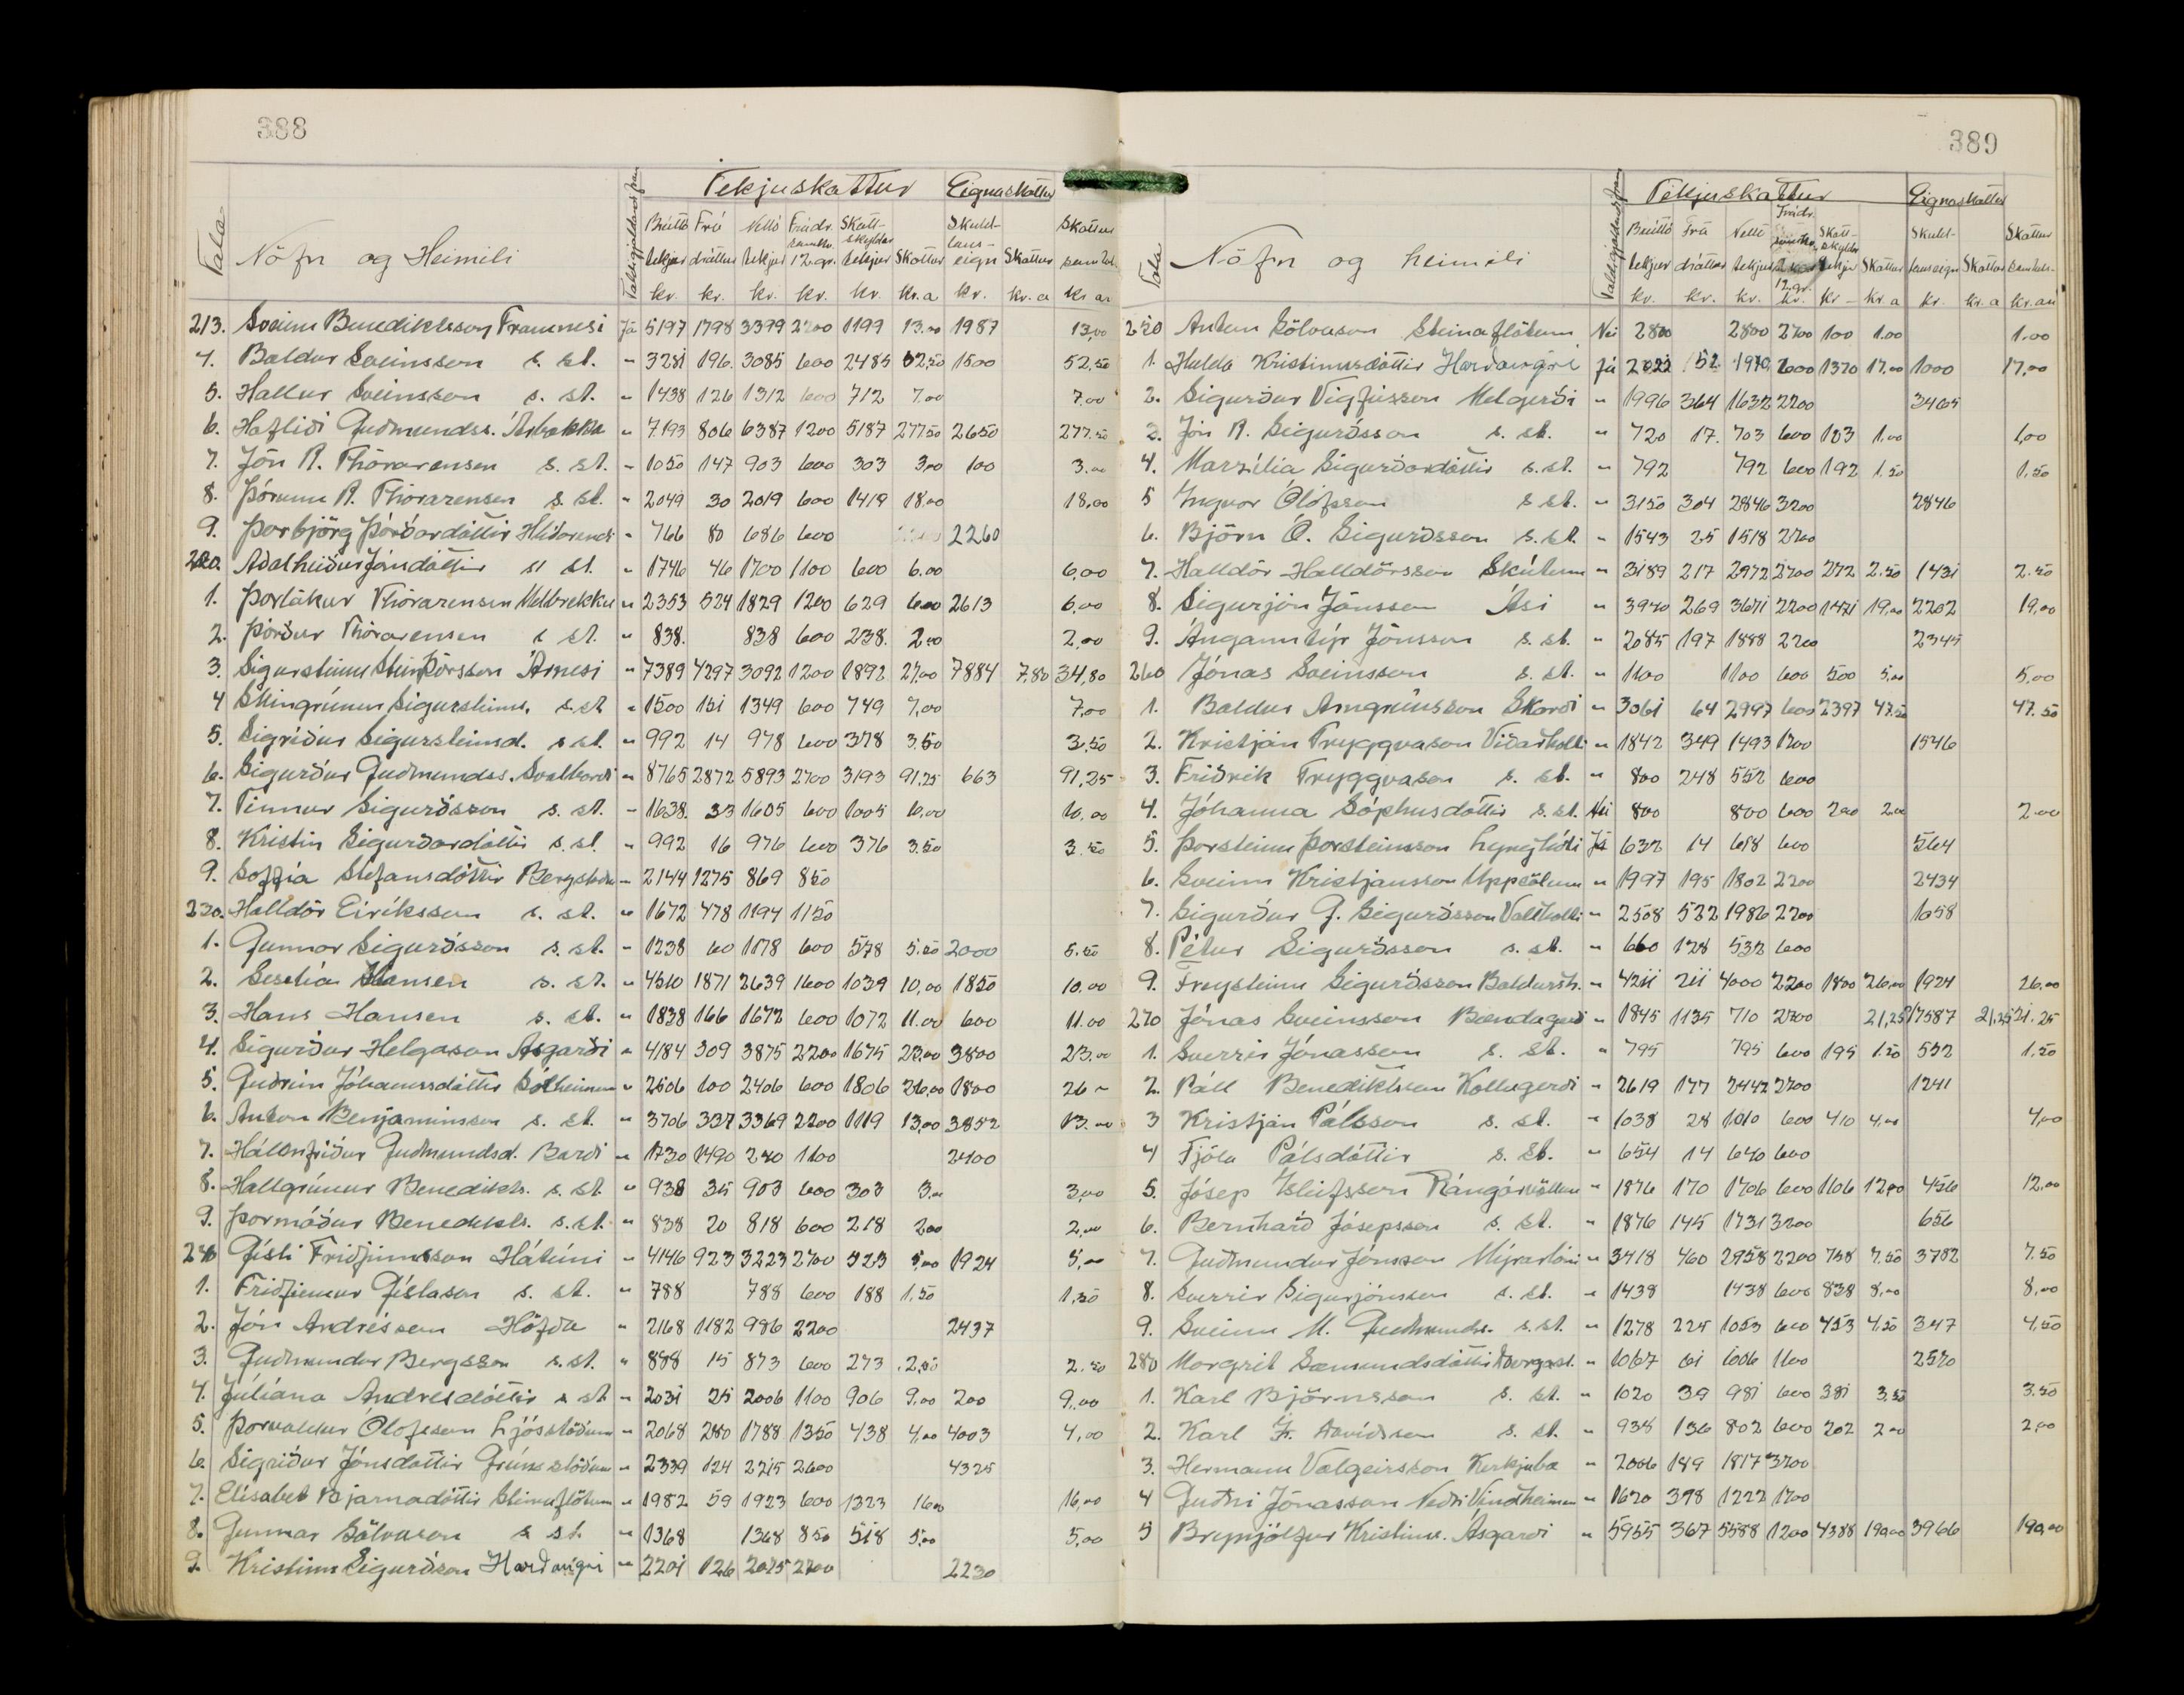 388
Tekjuskattur Eignaskattur
Tala Nöfn og Heimili Brúttó tekjur kr. Frá dráttur kr. Nettó tekjur kr. Frádr. samkv. 12. gr. kr. Skatt- skyldar tekjur kr. Skattur kr. a Skuld- laus- eign kr. Skattur kr. a Skattur kr. au
213. Sveinn Benediktsson Framnesi Já 5197 1798 3399 2200 1199 13.00 1987 13,00
4. Baldur Sveinsson s. st. " 3281 196. 3085 600 2485 52,50 1500 52,50
5. Hallur Sveinsson s. st. " 1438 126 1312 600 712 7.00 7.00
6. Hafliði Guðmundss. Árbakka " 7193 806 6387 1200 5187 277.50 2650 277.50
7. Jón R. Thórarensen s. st. " 1050 147 903 600 303 3,00 100 3.00
8. Þórunn R. Thórarensen s. st. " 2049 30 2019 600 1419 18.00 18,00
9. Þorbjörg Þórðardóttir Hlíðarenda " 766 80 686 600 2260
220. Aðalheiður Jónsdóttir s. st. " 1746 46 1700 1100 600 6.00 6,00
1. Þorlákur Thórarensen Melbrekku " 2353 524 1829 1200 629 6.00 2613 6,00
2. Þórður Thórarensen s st. " 838. 838 600 238. 2,00 2,00
3. Sigursteinn Steinþórsson Árnesi " 7389 4297 3092 1200 1892 27,00 7884 7,80 34,80
4 Steingrímur Sigursteinss. s.st. " 1500 151 1349 600 749 7,00 7,00
5. Sigríður Sigursteinsd. s st. " 992 14 978 600 378 3,50 3,50
6. Sigurður Guðmundss. Svalbarði " 8765 2872 5893 2700 3193 91,25 663 91,25
7. Finnur Sigurðsson s. st. " 1638. 33 1605 600 1005 10,00 10,00
8. Kristín Sigurðardóttir s. st. " 992 16 976 600 376 3.50 3.50
9. Soffía Stefansdóttir Bergstöðum " 2144 1275 869 850
230. Halldór Eiríksson s. st. " 1672 478 1194 1150
1. Gunnar Sigurðsson s. st. " 1238 60 1178 600 578 5.50 2000 5.50
2. Seselía Hansen s. st. " 4510 1871 2639 1600 1039 10,00 1850 10.00
3. Hans Hansen s. st. " 1838 166 1672 600 1072 11.00 600 11.00
4. Sigurður Helgason Ásgarði " 4184 309 3875 2200 1675 23,00 3800 23,00
5. Guðrún Jóhannsdóttir Sólheimum " 2506 100 2406 600 1806 26,00 1800 26 ~
6. Anton Benjamínsson s. st. " 3706 337 3369 2200 1119 13,00 3852 13.00
7. Hólmfríður Guðmundsd. Barði " 1730 1490 240 1100 2400
8. Hallgrímur Benedikts. s. st. " 938 35 903 600 303 3,00 3,00
9. Þormóður Benedikts. s. st. " 838 20 818 600 218 2.00 2,00
240 Gísli Friðfinnsson Hátúni " 4146 923 3223 2700 523 5,00 1924 5,00
1. Friðfinnur Gíslason s. st. " 788 788 600 188 1,50 1,50
2. Jón Andrésson Höfða " 2168 1182 986 2200 2437
3. Guðmundur Bergsson s. st. " 888 15 873 600 273 2.50 2.50
4. Júlíana Andrésdóttir s st " 2031 25 2006 1100 906 9,00 200 9,00
5. Þorvaldur Ólafsson Ljósstöðum " 2068 280 1788 1350 438 4,00 4003 4,00
6. Sigríður Jónsdóttir Grímsstöðum " 2339 124 2215 2600 4325
7. Elísabet Bjarnadóttir Steinaflötum " 1982 59 1923 600 1323 16.00 16,00
8. Gunnar Sölvason s st. " 1368 1368 850 518 5,00 5,00
9. Kristinn Sigurðsson Harðangri " 2201 126 2075 2700 2230
389
Tekjuskattur Eignaskattur
Tala Nöfn og heimili Brúttó tekjur kr. Frá dráttur kr. Nettó tekjur kr. Frádr. 12.gr. kr. Skatt- skyldar tekjur kr Skattur kr. a Skuld- laus eign kr. Skattur kr. a Skattur samtals. kr. au
250 Anton Sölvason Steinaflötum Nei 2800 2800 2700 100 1.00 1.00
1. Hulda Kristinnsdóttir Harðangri Já 2022 52 1970 600 1370 17,00 1000 17,00
2. Sigurður Vigfússon Melgerði " 1996 364 1632 2200 3465
3. Jón R. Sigurðsson s. st. " 720 17. 703 600 103 1,00 1,00
4. Marsilía Sigurðardóttir s. st. " 792 792 600 192 1.50 1,50
5 Ingvar Ólafsson s st. " 3150 304 2846 3200 2846
6. Björn Ó. Sigurðsson s. st. " 1543 25 1518 2700
7. Halldór Halldórsson Skútum " 3189 217 2972 2700 272 2.50 1431 2.50
8. Sigurjón Jónsson Ási " 3940 269 3671 2200 1471 19,00 2202 19,00
9. Angantýr Jónsson s. st. " 2085 197 1888 2200 2345
260 Jónas Sveinsson s. st. " 1100 1100 600 500 5,00 5,00
1. Baldur Arngrímsson Skarði " 3061 64 2997 600 2397 47.50 47.50
2. Kristján Tryggvason Viðarholti " 1842 349 1493 1700 1546
3. Friðrik Tryggvason s. st. " 800 248 552 600
4. Jóhanna Sóphusdóttir s. st. Nei 800 800 600 200 2.00 2.00
5. Þorsteinn Þorsteinsson Lyngholti Já 632 14 618 600 564
6. Sveinn Kristjánsson Uppsölum " 1997 195 1802 2200 2434
7. Sigurður G. Sigurðsson Vallholti " 2508 522 1986 2200 1058
8. Pétur Sigurðsson s. st. " 660 128 532 600
9. Freysteinn Sigurðsson Baldursh. " 4211 211 4000 2200 1800 26,00 1924 26.00
270 Jónas Sveinsson Bændagerði " 1845 1135 710 2700 21,25 17587 21,25 21.25
1. Sverrir Jónasson s. st. " 795 795 600 195 1.50 532 1,50
2. Páll Benediktsson Kollugerði " 2619 177 2442 2700 1241
3 Kristján Pálsson s. st. " 1038 28 1010 600 410 4,00 4,00
4 Fjóla Pálsdóttir s. st. " 654 14 640 600
5. Jósep Ísleifsson Rángárvöllum " 1876 170 1706 600 1106 12,00 456 12,00
6. Bernharð Jósepsson s. st. " 1876 145 1731 3200 656
7. Guðmundur Jónsson Mýrarlóni " 3418 460 2958 2200 758 7.50 3782 7.50
8. Sverrir Sigurjónsson s. st. " 1438 1438 600 838 8,00 8,00
9. Sveinn M. Guðmunds. s. st. " 1278 225 1053 600 453 4.50 347 4,50
280 Margrét Sæmundsdóttir " 1067 61 1006 1100 2570
1. Karl Björnsson s. st. " 1020 39 981 600 381 3.50 3.50
2. Karl Fr. Davíðsson s. st. " 938 136 802 600 202 2.00 2,00
3. Hermann Valgeirsson Kirkjubæ " 2006 189 1817 3200
4 Guðni Jónasson Neðri Vindheimum " 1620 398 1222 1700
5 Brynjólfur Kristinss. Ásgarði " 5955 367 5588 1200 4388 190,00 3966 190,00